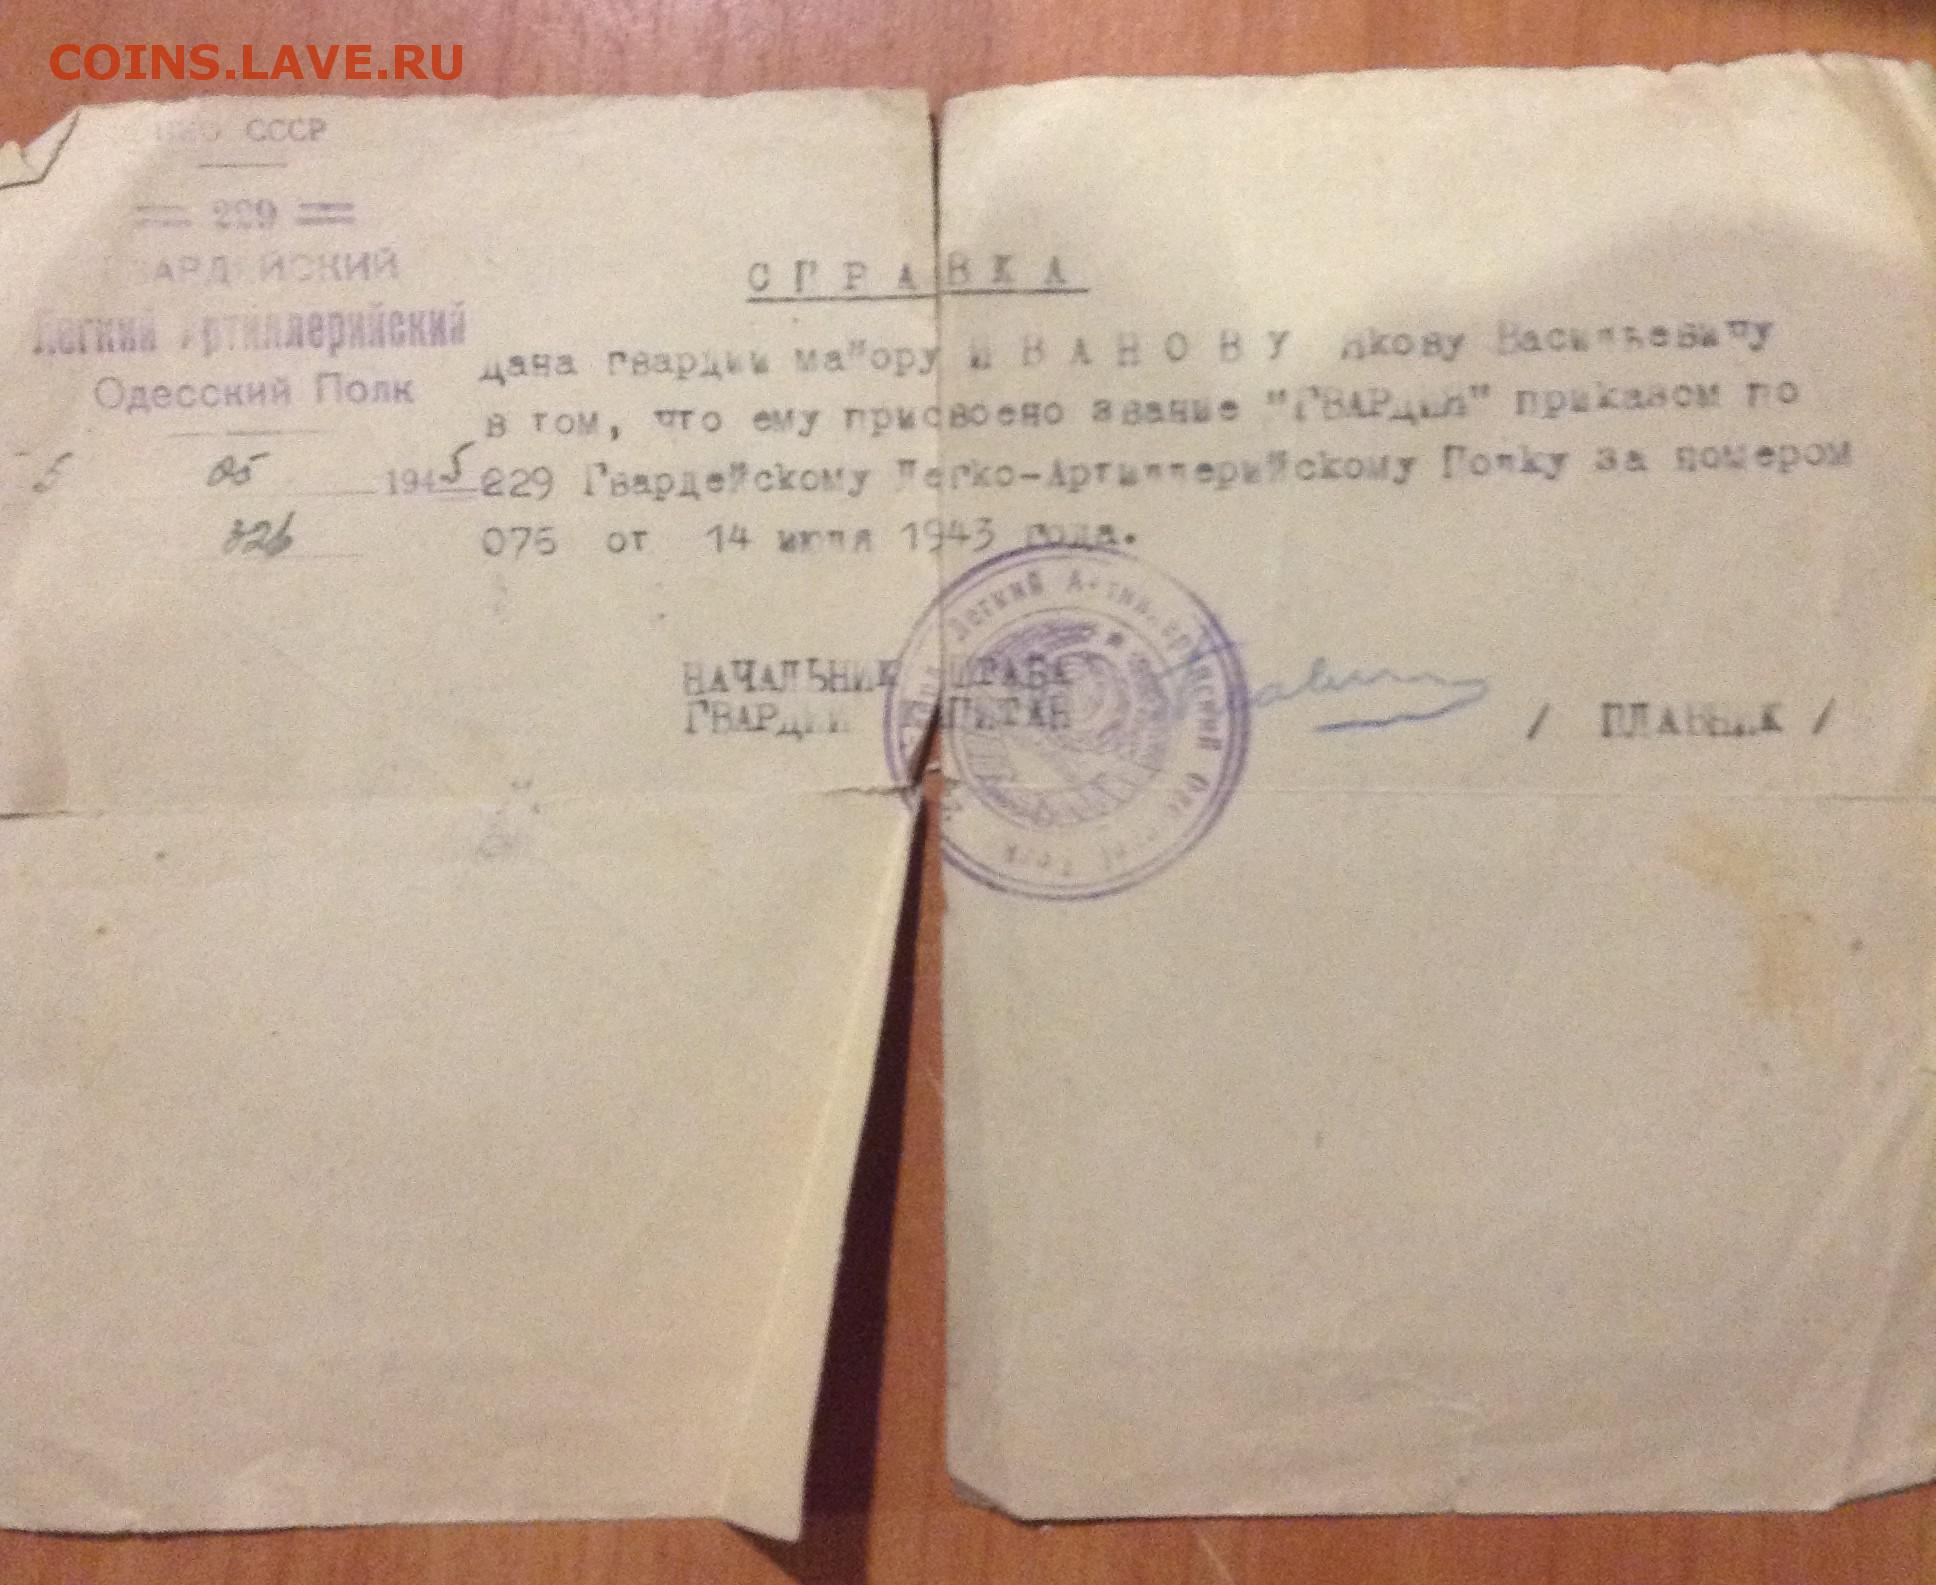 COINS.LAVE.RU
НКО СССР
229
ГВАРДЕЙСКИЙ
Легкий Артиллерийский
Одесский Полк
5 05 1945
326
СПРАВКА
дана гвардии майору ИВАНОВУ Якову Васильевичу
в том, что ему присвоено звание "ГВАРДИИ" приказом по
229 Гвардейскому Легко-Артиллерийскому Полку за номером
075 от 14 июля 1943 года.
НАЧАЛЬНИК ШТАБА
ГВАРДИИ КАПИТАН / ПЛАВНИК /
Легкий Артиллерийский Одесский Полк